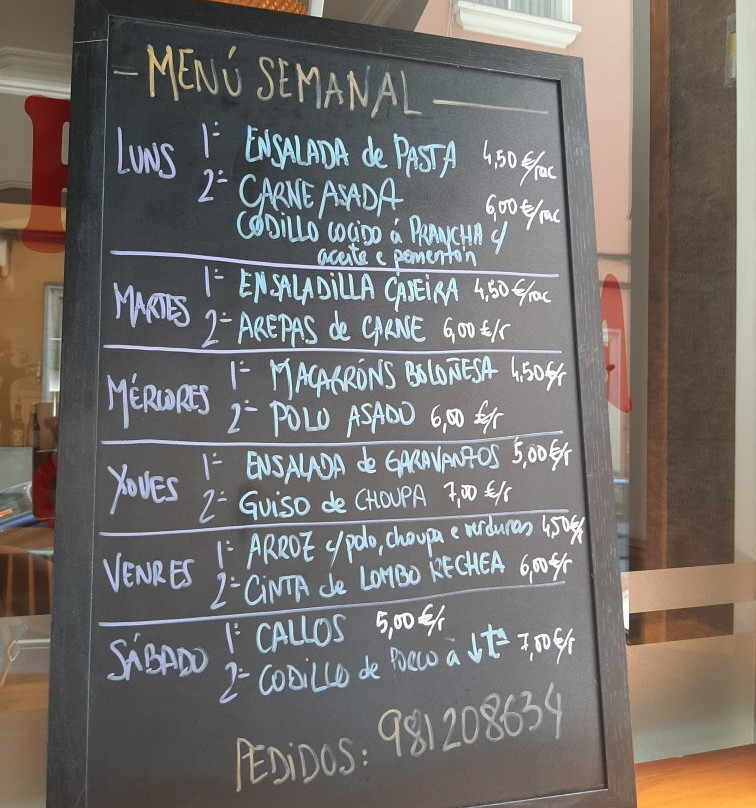 MENÚ SEMANAL
LUNS 1º ENSALADA de PASTA 4,50 €/rac
2º CARNE ASADA 6,00 €/rac
CODILLO COCIDO á PRANCHA c/
aceite e pementón
MARTES 1º ENSALADILLA CASEIRA 4,50 €/rac
2º AREPAS de CARNE 6,00 €/r
MÉRCORES 1º MACARRÓNS BOLOÑESA 4,50 €/r
2º POLO ASADO 6,00 €/r
XOVES 1º ENSALADA de GARAVANZOS 5,00 €/r
2º GUISO de CHOUPA 7,00 €/r
VENRES 1º ARROZ c/ polo, choupa e verduras 4,50 €/r
2º CINTA de LOMBO RECHEA 6,00 €/r
SÁBADO 1º CALLOS 5,00 €/r
2º CODILLO de PORCO á ↓Tª 7,00 €/r
PEDIDOS: 981208634